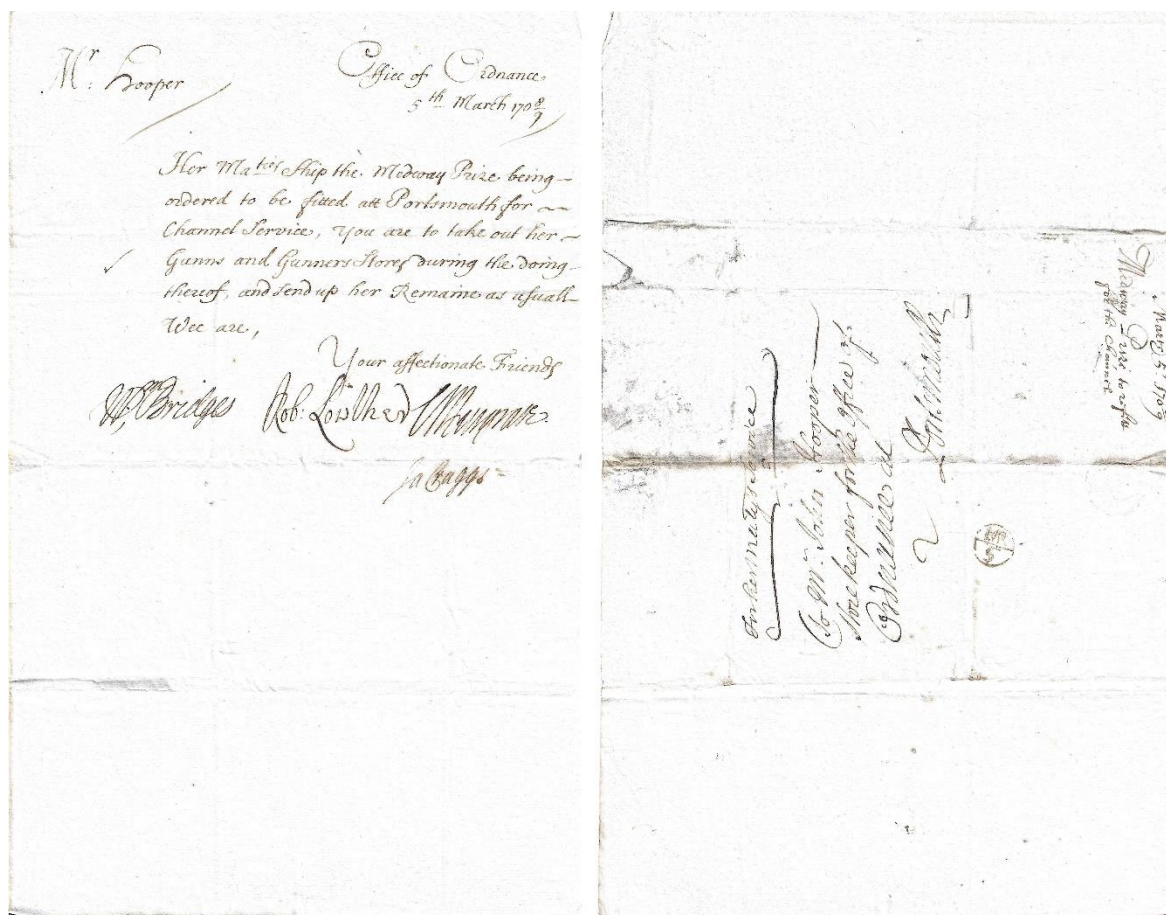 Mr: Hooper
Office of Ordnance
5th March 1708/9
Her Maties Ship the Medway Prize being
ordered to be fitted att Portsmouth for
Channel Service, You are to take out her
Gunns and Gunners Stores during the doing
thereof, and send up her Remaine as usuall
Wee are,
Your affectionate Friends
Wm Bridges Rob: Lowther
Ja Craggs
For her Matys Service
To Mr John Hooper
Storekeeper for the Office of
Ordnance at
Portsmouth
MR
5
March 5th 1709
Medway Prize to refitt
for the Channel